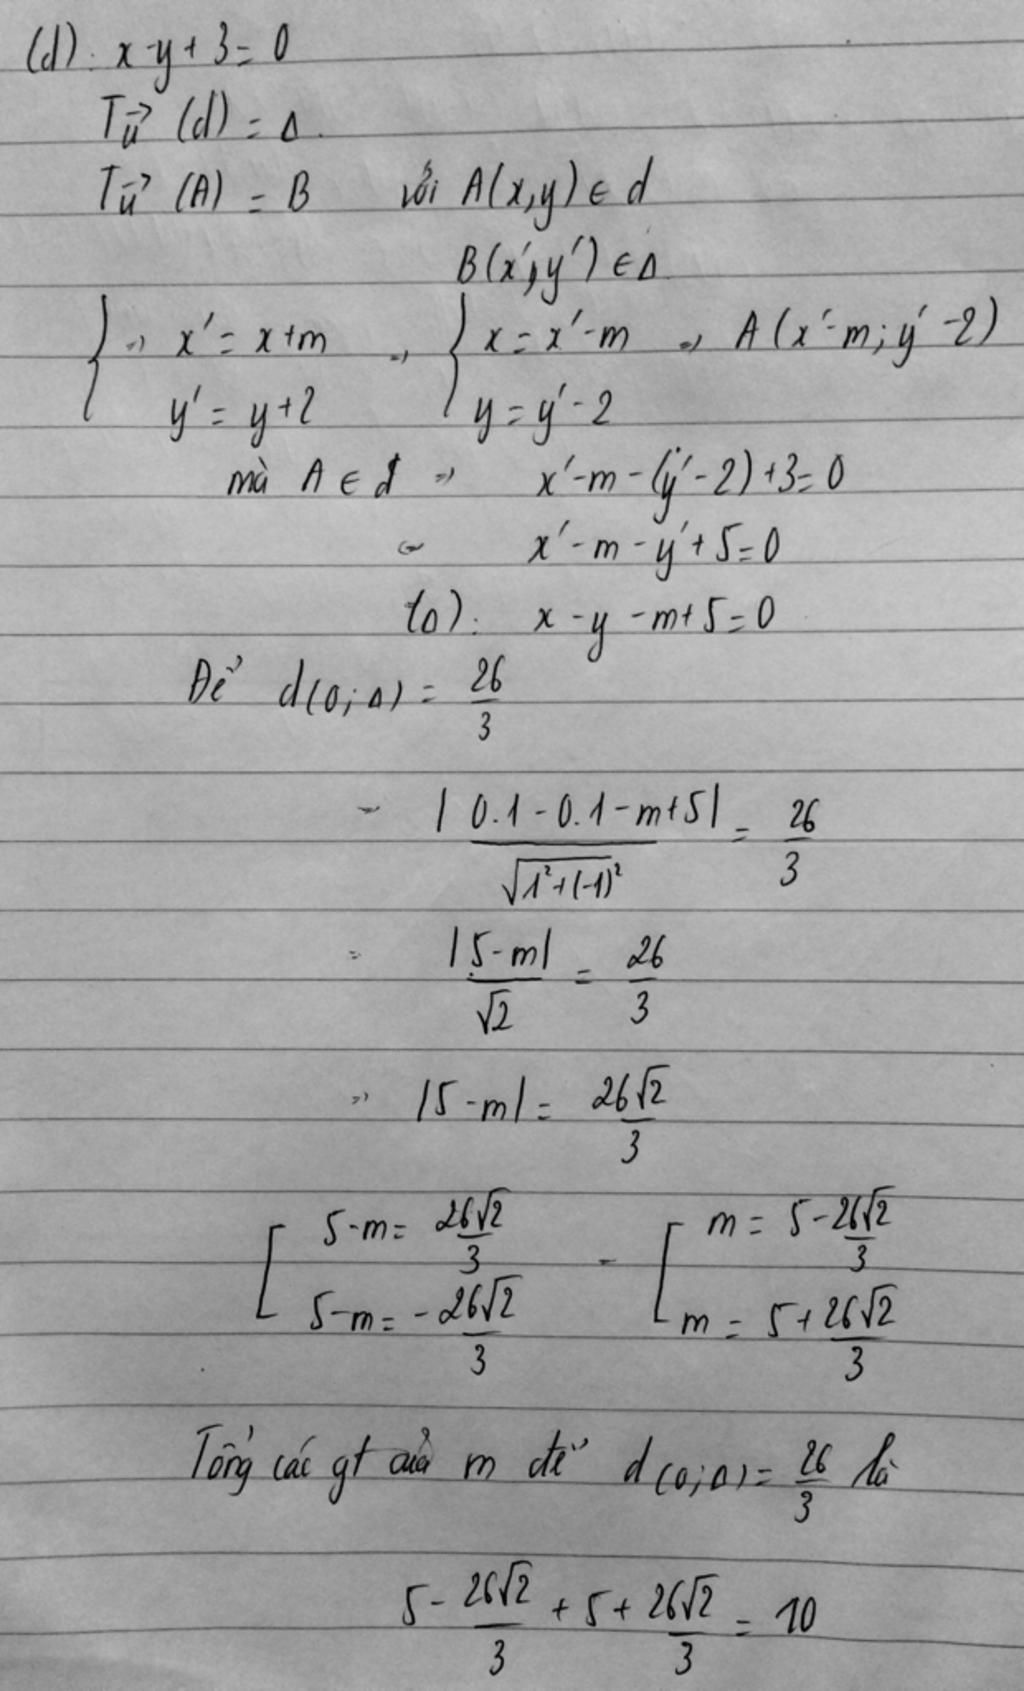 (d): x-y+3=0
T_u⃗ (d) = Δ.
T_u⃗ (A) = B với A(x,y) ∈ d
B(x',y') ∈ Δ.
{ => x' = x+m => { x = x'-m => A(x'-m; y'-2)
y' = y+2 y = y'-2
mà A ∈ d => x'-m-(y'-2)+3=0
<=> x'-m-y'+5=0
(Δ): x-y-m+5=0
Để d(0;Δ) = 26/3
<=> |0.1-0.1-m+5| / √(1²+(-1)²) = 26/3
= |5-m|/√2 = 26/3
=> |5-m| = 26√2/3
[ 5-m = 26√2/3 - [ m = 5-26√2/3
5-m = -26√2/3 m = 5+26√2/3
Tổng các gt của m để d(0;Δ) = 26/3 là
5 - 26√2/3 + 5 + 26√2/3 = 10